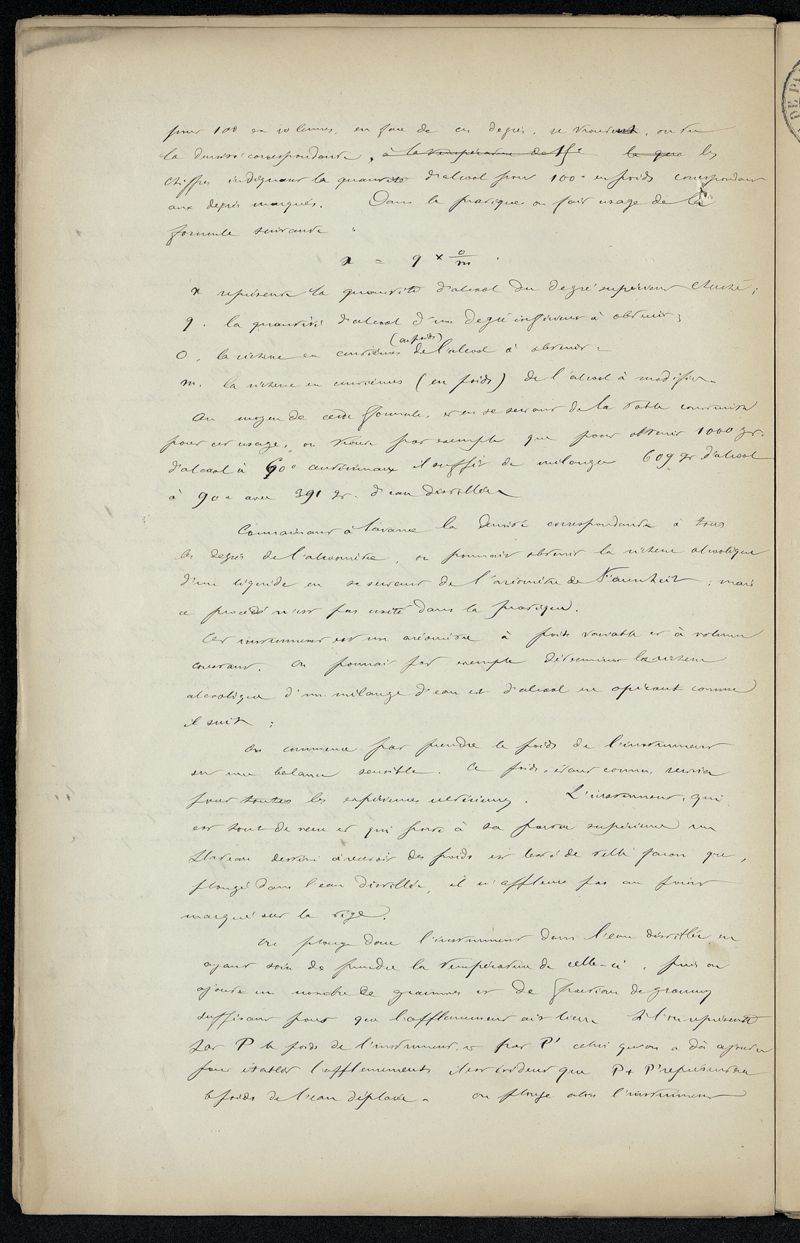 pour 100 en volumes, en face de ces degrés, se trouvent, outre
la densité correspondante, à la température de 15° les
chiffres indiquant la quantité d'alcool pour 100 en poids correspondant
aux degrés marqués. Dans la pratique on fait usage de la
formule suivante :
x = q × o/m.
x représente la quantité d'alcool du degré supérieur cherché ;
q. la quantité d'alcool d'un degré inférieur à obtenir ;
o. la richesse en centièmes (en poids) de l'alcool à obtenir.
m. la richesse en centièmes (en poids) de l'alcool à modifier.
Au moyen de cette formule, et en se servant de la table construite
pour cet usage, on trouve par exemple que pour obtenir 1000 gr.
d'alcool à 60° centésimaux il suffit de mélanger 609 gr d'alcool
à 90° avec 391 gr. d'eau distillée.
Connaissant à l'avance la densité correspondante à tous
les degrés de l'alcoomètre, on pourrait obtenir la richesse alcoolique
d'un liquide en se servant de l'aréomètre de Farenheit ; mais
ce procédé n'est pas usité dans la pratique.
Cet instrument est un aréomètre à poids variable et à volume
constant. On pourrait par exemple déterminer la richesse
alcoolique d'un mélange d'eau et d'alcool en opérant comme
il suit :
On commence par prendre le poids de l'instrument
sur une balance sensible. Ce poids, étant connu, servira
pour toutes les expériences ultérieures. L'instrument, qui
est tout de verre et qui porte à sa partie supérieure un
plateau destiné à recevoir des poids est lesté de telle façon que,
plongé dans l'eau distillée, il n'affleure pas au point
marqué sur la tige.
On plonge donc l'instrument dans l'eau distillée en
ayant soin de prendre la température de celle-ci, puis on
ajoute un nombre de grammes et de fraction de grammes
suffisant pour que l'affleurement ait lieu. Si l'on représente
par P le poids de l'instrument, et par P' celui qu'on a dû ajouter
pour établir l'affleurement, il est évident que P + P' représentera
le poids de l'eau déplacée. On plonge alors l'instrument